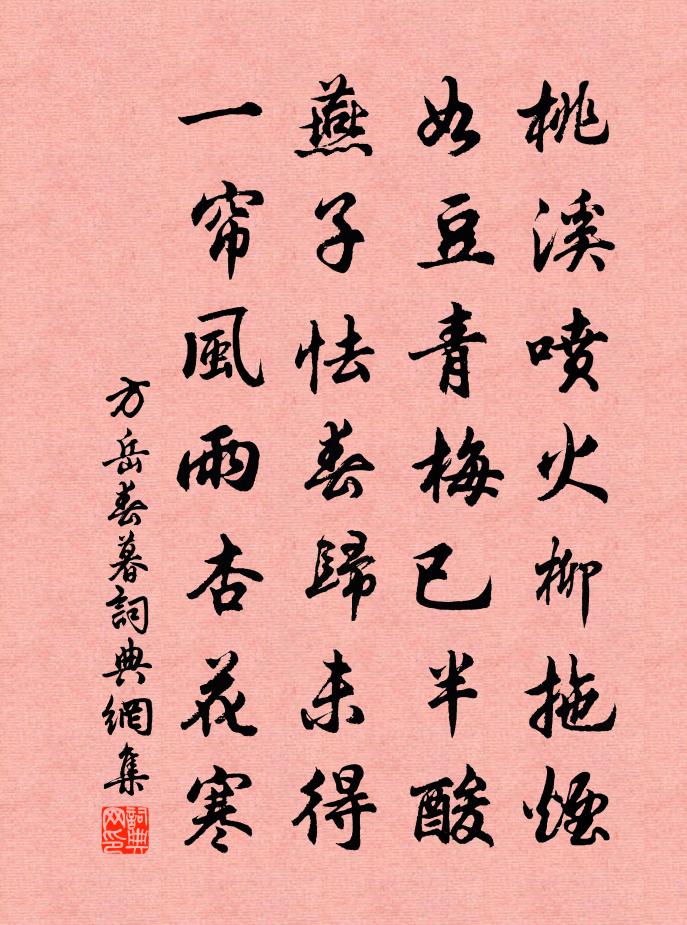 桃溪噴火柳拖煙
如豆青梅已半酸
燕子怯春歸未得
一帘風雨杏花寒
方岳春暮詞典網集
詞典网印